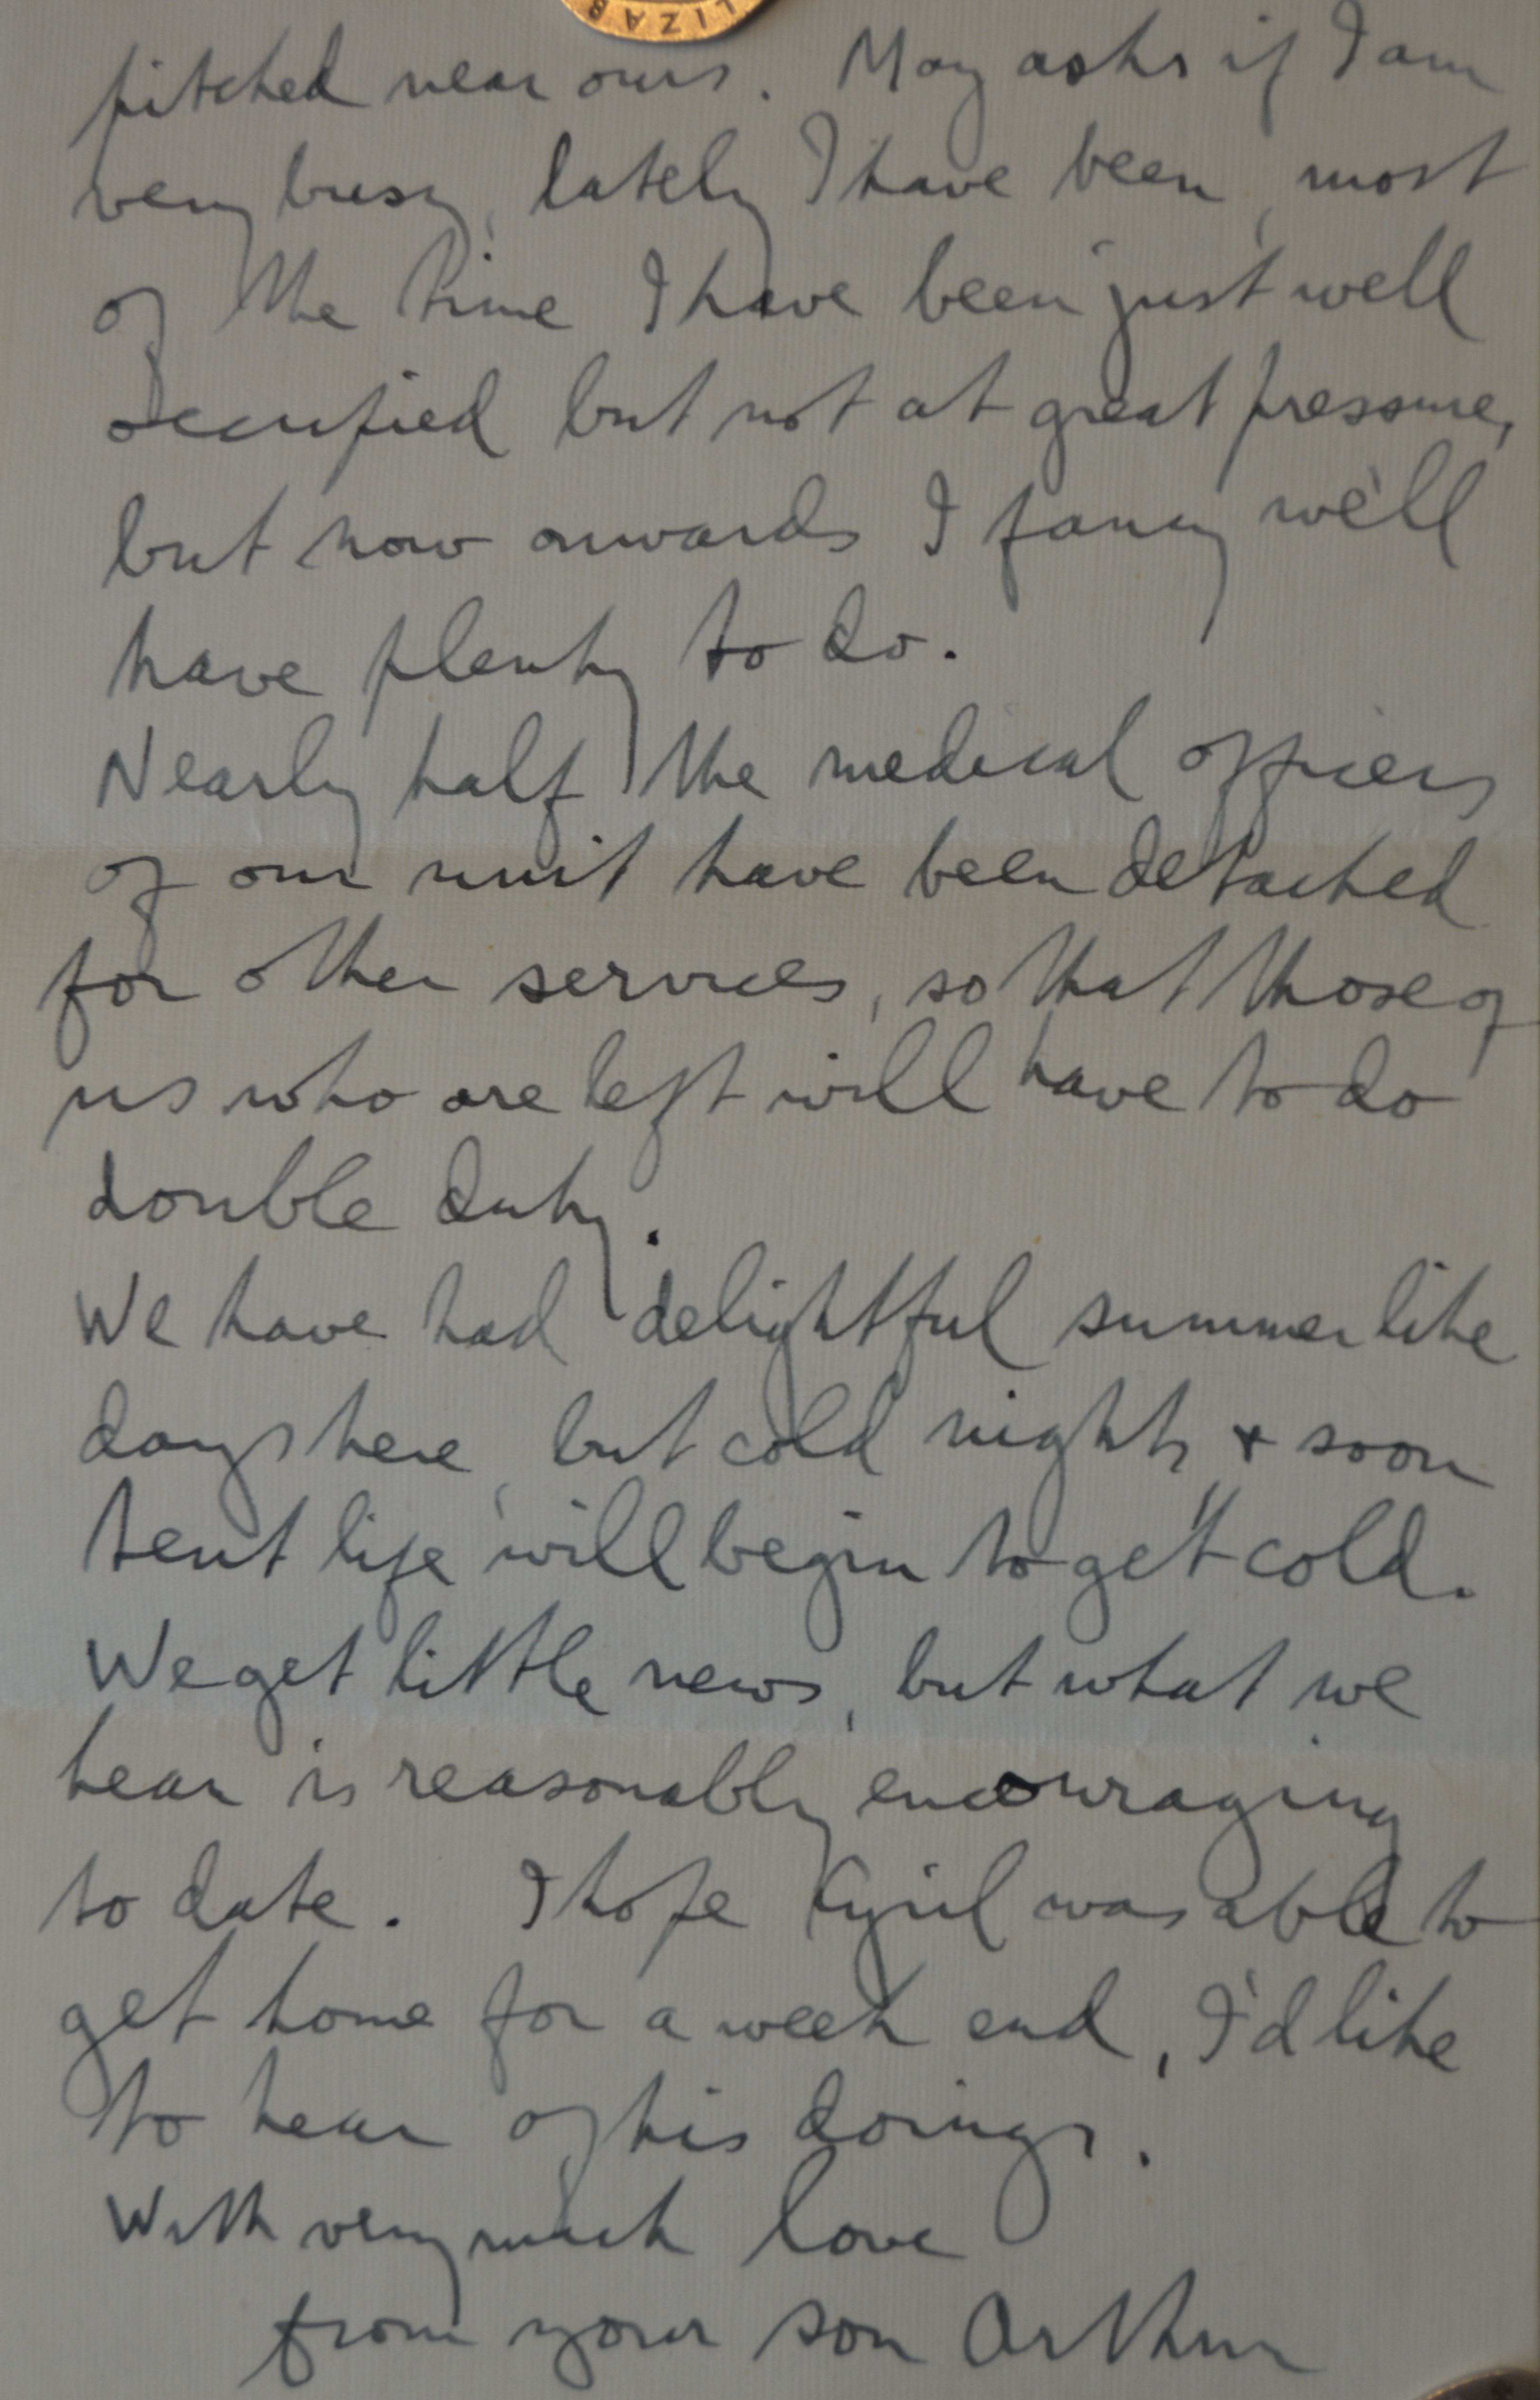 LIZAB
pitched near ours. May asks if I am
very busy, lately I have been, most
of the time I have been just well
occupied but not at great pressure,
but now onwards I fancy we'll
have plenty to do.
Nearly half the medical officers
of our unit have been detached
for other services, so that those of
us who are left will have to do
double duty.
We have had delightful summer like
days here, but cold nights & soon
tent life will begin to get cold.
We get little news, but what we
hear is reasonably encouraging
to date. I hope Cyril was able to
get home for a week end, I'd like
to hear of his doings.
With very much love
from your son Arthur